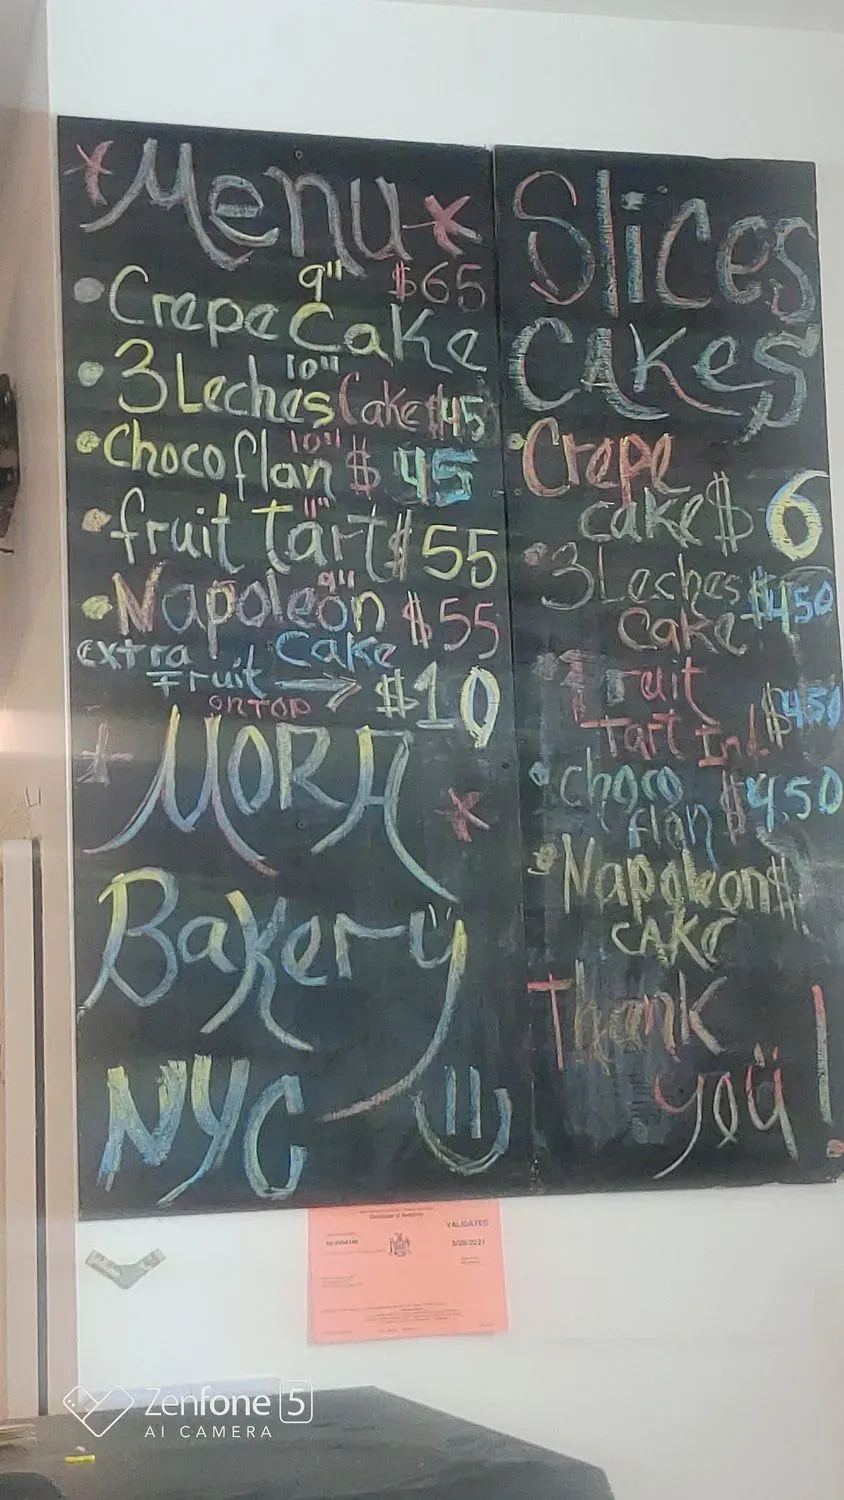 Menu
9" $65
Crepe Cake
10"
3 Leches Cake $45
10"
Chocoflan $45
11"
fruit tart $55
9"
Napoleon $55
extra Cake
Fruit → $10
ON TOP
MORA
Bakery
NYC
Slices
CAKES
Crepe
cake $6
3 Leches $450
Cake
Fruit
Tart Ind. $450
Choco
flan $4.50
Napoleon $
CAKE
Thank
you!
VALIDATED
3/26/2021
Zenfone 5
AI CAMERA